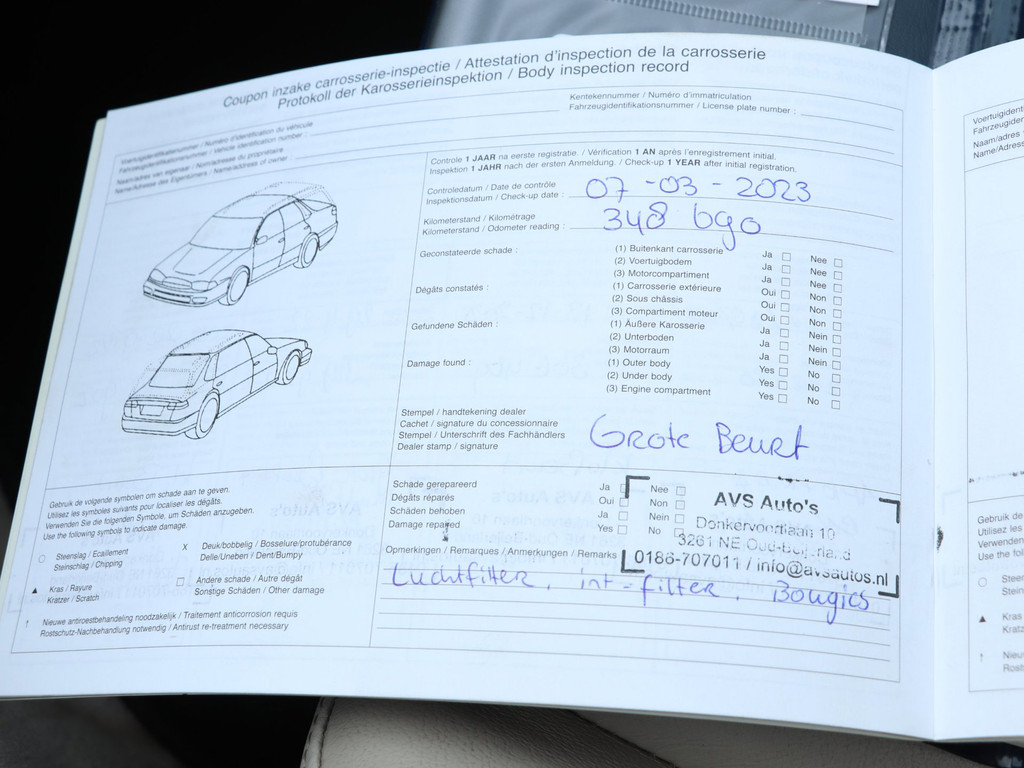 Coupon inzake carrosserie-inspectie / Attestation d'inspection de la carrosserie
Protokoll der Karosserieinspektion / Body inspection record
Kentekennummer / Numéro d'immatriculation
Fahrzeugidentifikationsnummer / License plate number :
Voertuigidentifikatienummer / Numéro d'identification du véhicule
Fahrzeugidentifikationsnummer / Vehicle identification number :
Naam/adres van eigenaar / Nom/adresse du propriétaire
Name/Adresse des Eigentümers / Name/address of owner :
Controle 1 JAAR na eerste registratie. / Vérification 1 AN après l'enregistrement initial.
Inspektion 1 JAHR nach der ersten Anmeldung. / Check-up 1 YEAR after initial registration.
Controledatum / Date de contrôle
Inspektionsdatum / Check-up date : 07-03-2023
Kilometerstand / Kilométrage
Kilometerstand / Odometer reading : 348 690
Geconstateerde schade : (1) Buitenkant carrosserie Ja Nee
(2) Voertuigbodem Ja Nee
(3) Motorcompartiment Ja Nee
Dégâts constatés : (1) Carrosserie extérieure Oui Non
(2) Sous châssis Oui Non
(3) Compartiment moteur Oui Non
Gefundene Schäden : (1) Äußere Karosserie Ja Nein
(2) Unterboden Ja Nein
(3) Motorraum Ja Nein
Damage found : (1) Outer body Yes No
(2) Under body Yes No
(3) Engine compartment Yes No
Stempel / handtekening dealer
Cachet / signature du concessionnaire
Stempel / Unterschrift des Fachhändlers
Dealer stamp / signature
Grote Beurt
Schade gerepareerd Ja Nee
Dégâts réparés Oui Non
Schäden behoben Ja Nein
Damage repaired Yes No
AVS Auto's
Donkervoortlaan 10
3261 NE Oud-Beijerland
0186-707011 / info@avsautos.nl
Opmerkingen / Remarques / Anmerkungen / Remarks
Luchtfilter, int-filter, Bougies
Gebruik de volgende symbolen om schade aan te geven.
Utilisez les symboles suivants pour localiser les dégâts.
Verwenden Sie die folgenden Symbole, um Schäden anzugeben.
Use the following symbols to indicate damage.
○ Steenslag / Ecaillement
Steinschlag / Chipping
X Deuk/bobbelig / Bosselure/protubérance
Delle/Uneben / Dent/Bumpy
▲ Kras / Rayure
Kratzer / Scratch
□ Andere schade / Autre dégât
Sonstige Schäden / Other damage
↑ Nieuwe antiroestbehandeling noodzakelijk / Traitement anticorrosion requis
Rostschutz-Nachbehandlung notwendig / Antirust re-treatment necessary
Voertuigident
Fahrzeugiden
Naam/adres
Name/Adress
Gebruik de
Utilisez les
Verwenden
Use the foll
○ Steen
Stein
▲ Kras
Kratz
↑ Nieu
Rost